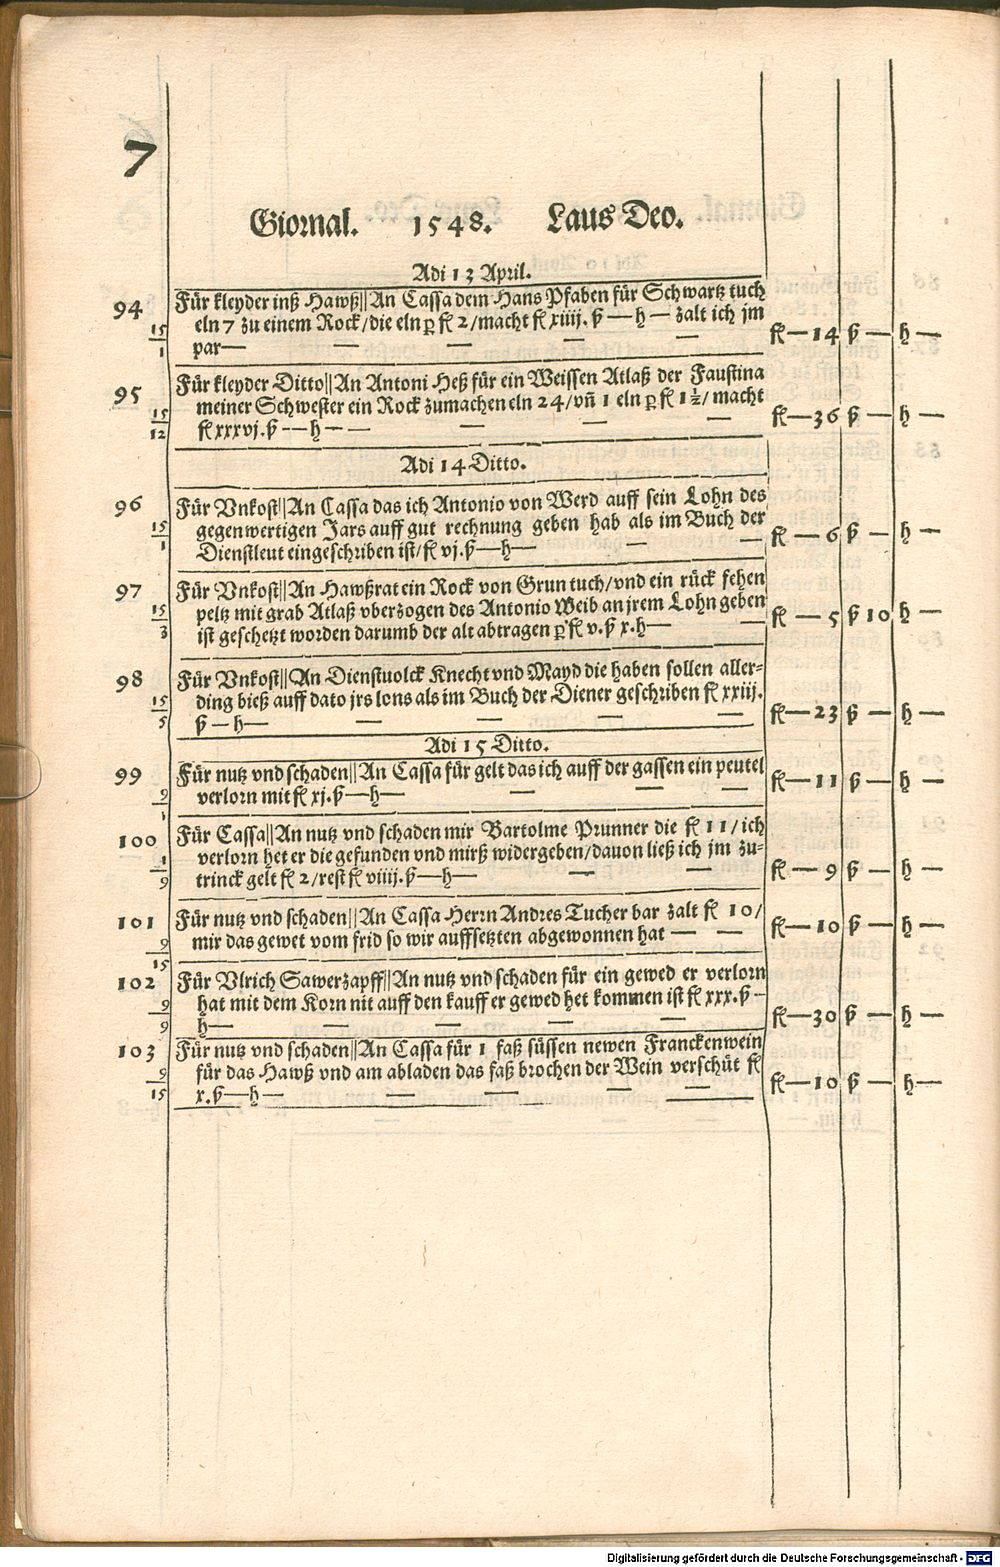 7
Giornal. 1548. Laus Deo.
Adi 13 April.
94 Für kleyder inß Hawß||An Cassa dem Hans Pfaben für Schwartz tuch
15/1 eln 7 zu einem Rock/die eln ꝑ fl 2/macht fl xiiij. ß — h — zalt ich jm fl—14 ß — h —
par— — — — —
95 Für kleyder Ditto||An Antoni Heß für ein Weissen Atlaß der Faustina
15/12 meiner Schwester ein Rock zumachen eln 24/vñ 1 eln ꝑ fl 1½/macht fl—36 ß — h —
fl xxxvj. ß — h — — — — —
Adi 14 Ditto.
96 Für Vnkost||An Cassa das ich Antonio von Werd auff sein Lohn des
15/1 gegenwertigen Jars auff gut rechnung geben hab als im Buch der fl—6 ß — h —
Dienstleut eingeschriben ist/fl vj. ß — h — — —
97 Für Vnkost||An Hawßrat ein Rock von Grun tuch/vnd ein rück fehen
15/3 peltz mit grab Atlaß vberzogen des Antonio Weib an jrem Lohn geben fl—5 ß 10 h —
ist geschetzt worden darumb der alt abtragen ꝑ fl v. ß x. h — —
98 Für Vnkost||An Dienstuolck Knecht vnd Mayd die haben sollen aller-
15/5 ding bieß auff dato jrs lons als im Buch der Diener geschriben fl xxiij. fl—23 ß — h —
ß — h — — — — —
Adi 15 Ditto.
99 Für nutz vnd schaden||An Cassa für gelt das ich auff der gassen ein peutel fl—11 ß — h —
9/1 verlorn mit fl xj. ß — h — — — —
100 Für Cassa||An nutz vnd schaden mir Bartolme Prunner die fl 11/ich
1/9 verlorn het er die gefunden vnd mirß widergeben/dauon ließ ich jm zu-
trinck gelt fl 2/rest fl viiij. ß — h — — — fl—9 ß — h —
101 Für nutz vnd schaden||An Cassa Herrn Andres Tucher bar zalt fl 10/
9/15 mir das gewet vom frid so wir auffsetzten abgewonnen hat — — fl—10 ß — h —
102 Für Vlrich Sawerzapff||An nutz vnd schaden für ein gewed er verlorn
9/9 hat mit dem Korn nit auff den kauff er gewed het kommen ist fl xxx. ß — fl—30 ß — h —
h — — — — —
103 Für nutz vnd schaden||An Cassa für 1 faß süssen newen Franckenwein
9/15 für das Hawß vnd am abladen das faß brochen der Wein verschüt fl fl—10 ß — h —
x. ß — h — — — — —
Digitalisierung gefördert durch die Deutsche Forschungsgemeinschaft - DFG